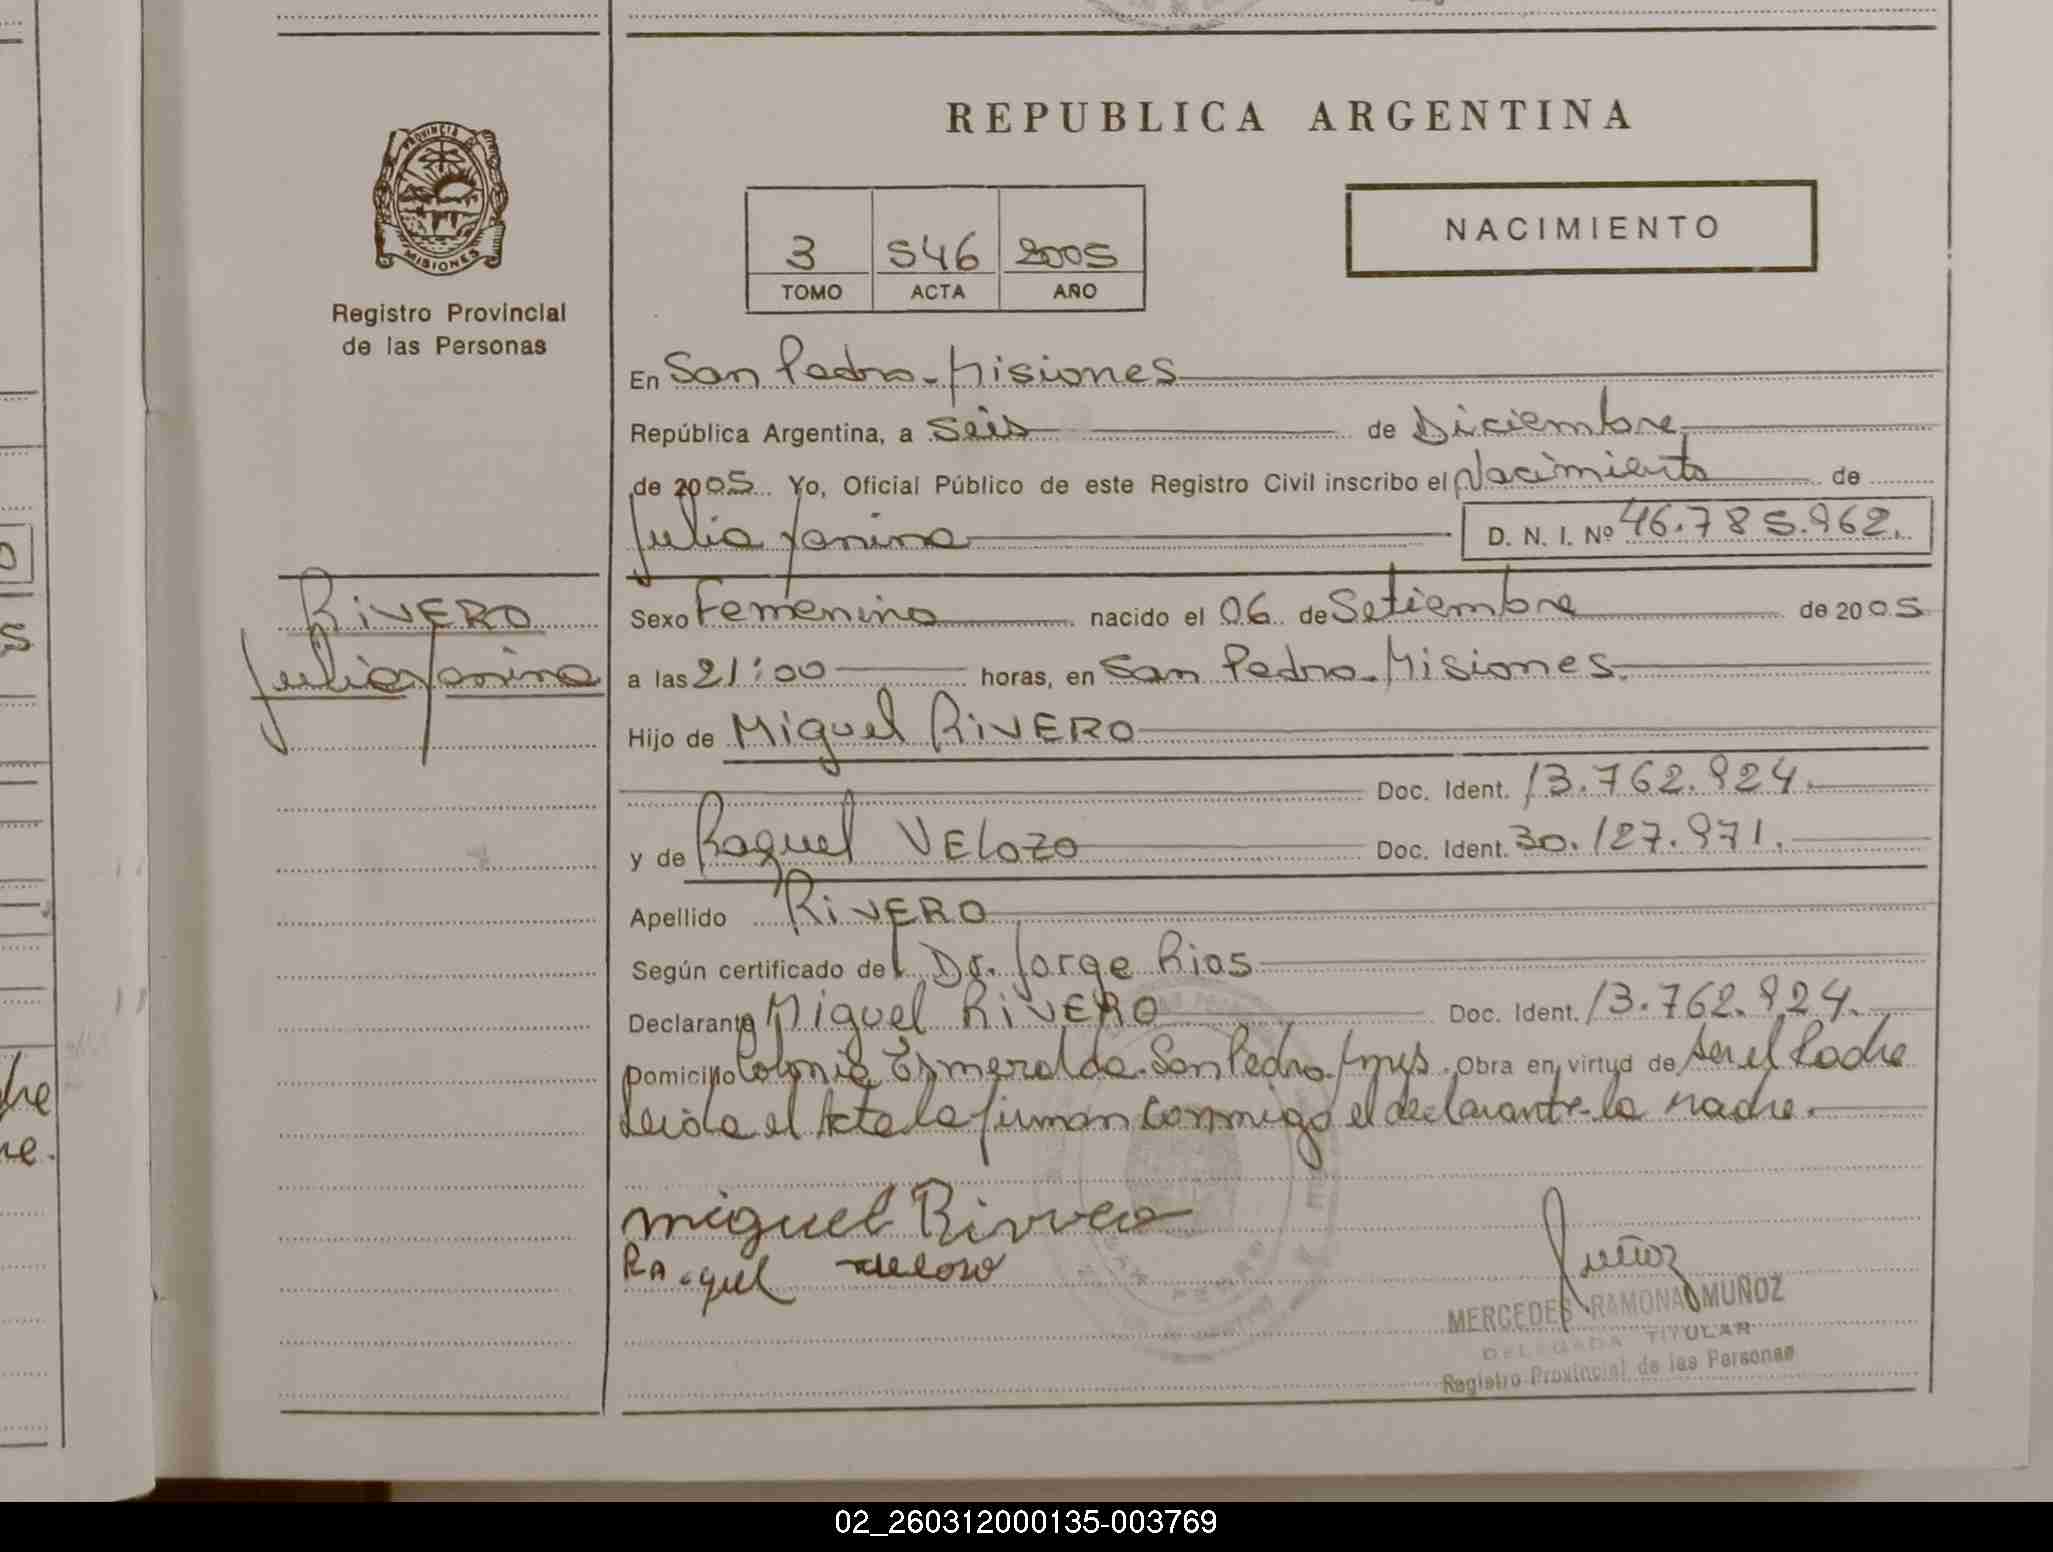 REPUBLICA ARGENTINA
PROVINCIA
MISIONES
Registro Provincial
de las Personas
NACIMIENTO
3 546 2005
TOMO ACTA AÑO
En San Pedro - Misiones
República Argentina, a seis de Diciembre
de 2005 Yo, Oficial Público de este Registro Civil inscribo el Nacimiento de
Julia Yanina D. N. I. Nº 46.785.962.
RIVERO
Julia Yanina
Sexo Femenino nacido el 06 de Setiembre de 2005
a las 21:00 horas, en San Pedro - Misiones.
Hijo de Miguel RIVERO
Doc. Ident. 13.762.924.
y de Raquel VELOZO Doc. Ident. 30.127.971.
Apellido RIVERO
Según certificado del Dr. Jorge Rios
Declarante Miguel RIVERO Doc. Ident. 13.762.924.
Domicilio Colonia Esmeralda - San Pedro - Mnes. Obra en virtud de ser el Padre
Leida el Acta la firman conmigo el declarante - la madre.
miguel Rivero
RA quel veloso
Muñoz
MERCEDES RAMONA MUÑOZ
DELEGADA TITULAR
Registro Provincial de las Personas
SAN PEDRO
02_260312000135-003769